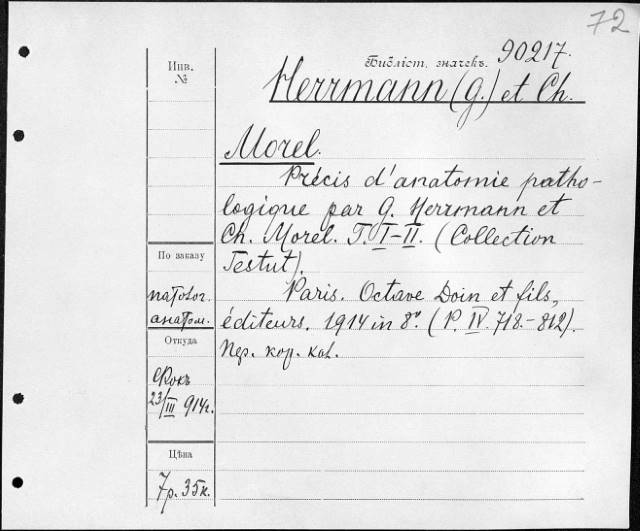 72
Библіот. значекъ. 90217.
Инв.
№
Herrmann (G.) et Ch.
Morel.
Précis d'anatomie patho-
logique par G. Herrmann et
Ch. Morel. T. I-II. (Collection
Testut).
По заказу
патолог.
анатом.
Paris. Octave Doin et fils,
éditeurs. 1914 in 8º. (P. IV. 718.-812).
Пер. кор. кал.
Откуда
23/III 914г.
Цѣна
7р. 35к.